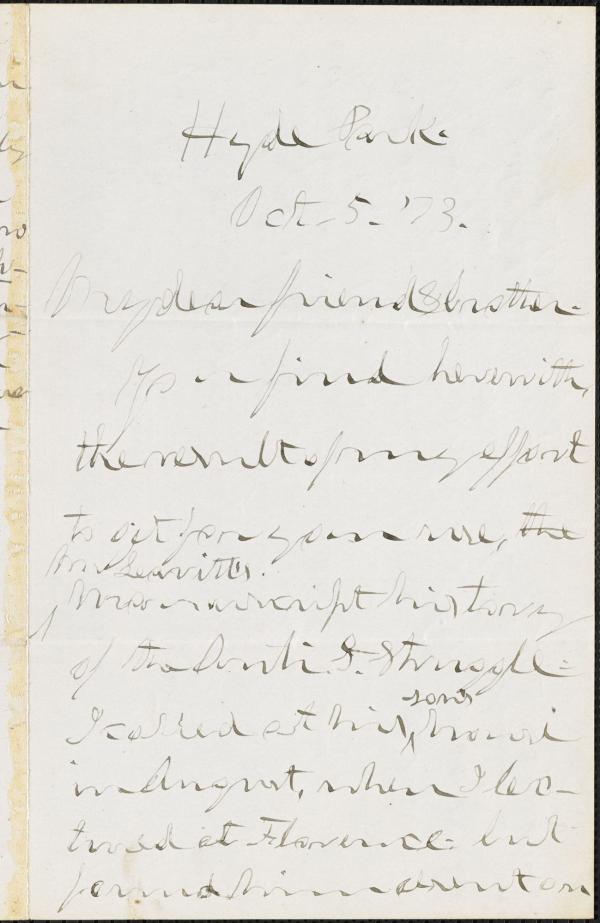 Hyde Park.
Oct. 5. '73.
My dear friend & brother.
You find herewith,
the result of my effort
to get for your use, the
Mr Leavitt's
Manuscript history
of the Anti. S. Struggle.
I called at his son's house
in August, when I lec-
tured at Florence. but
found him absent on